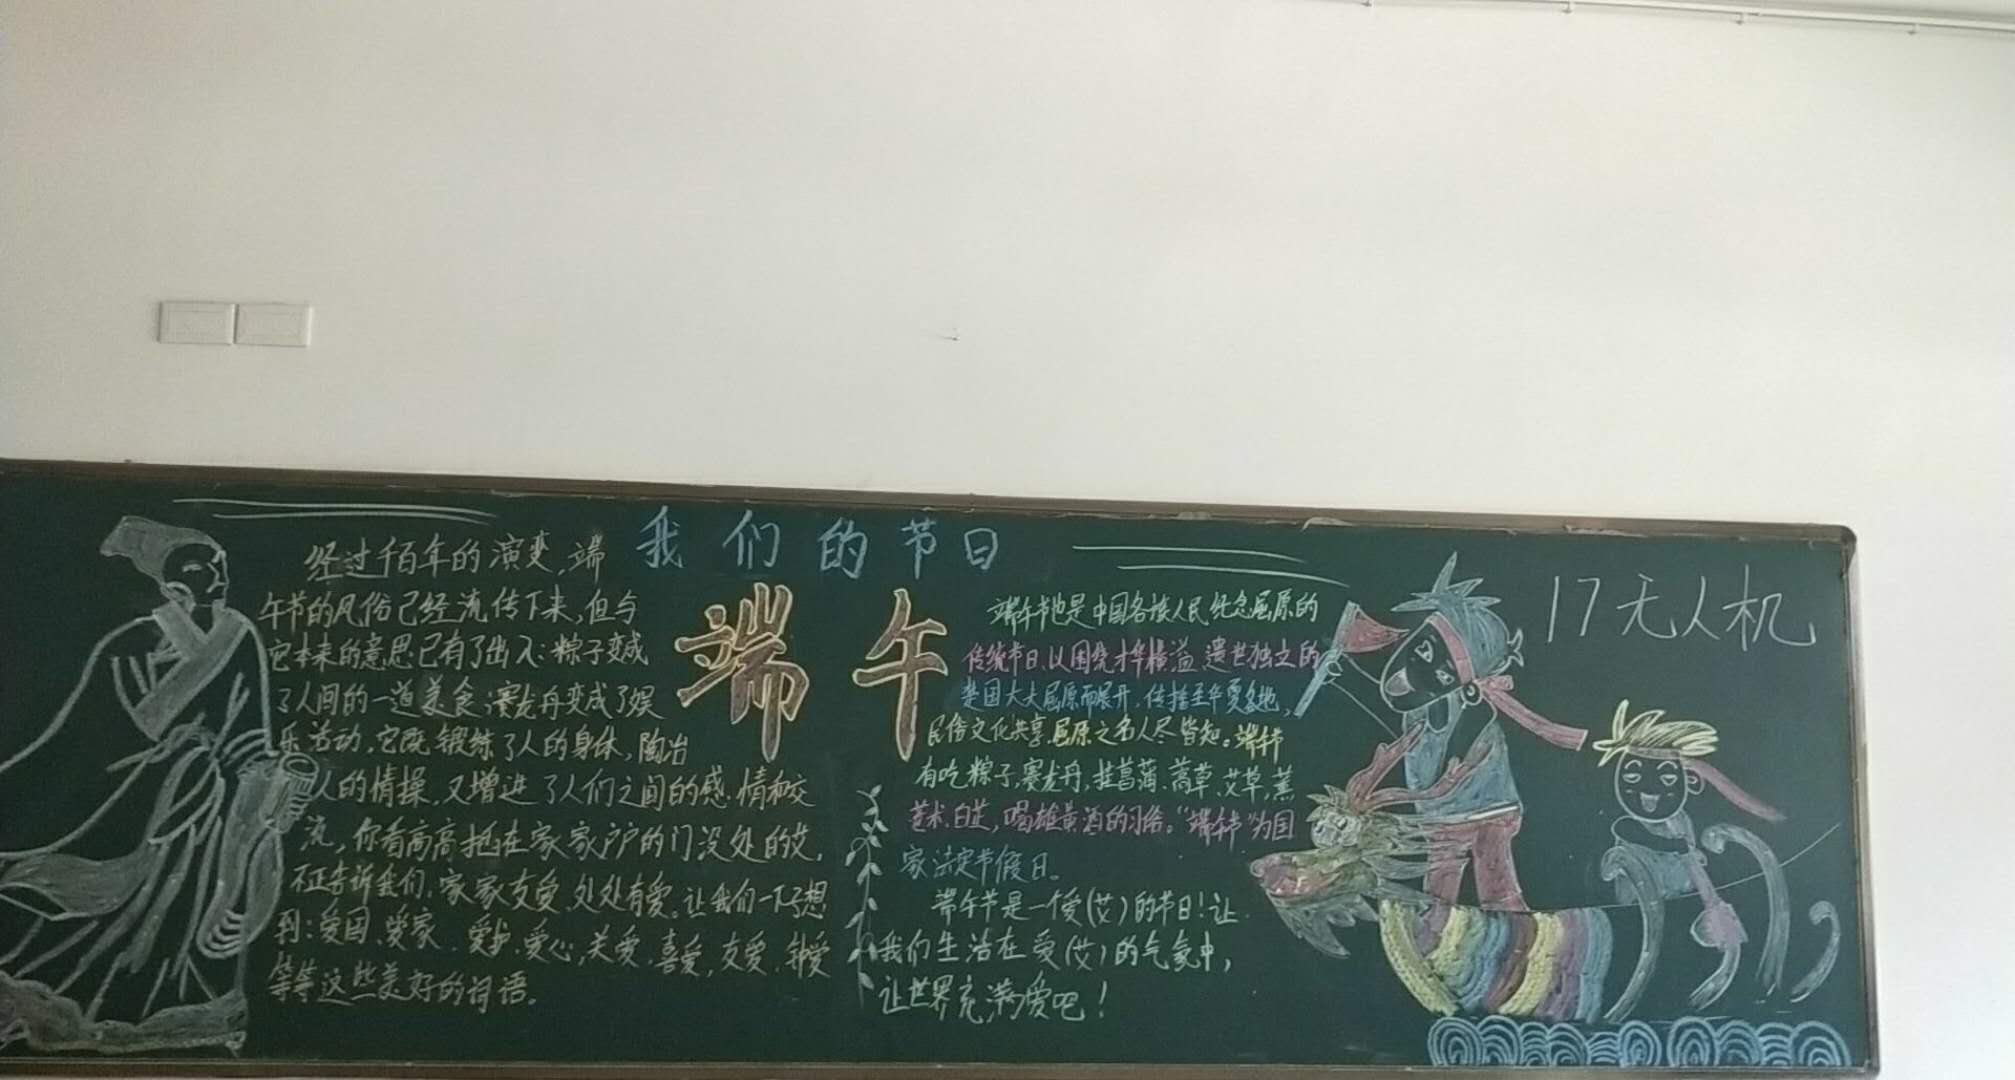 我们的节日
端午
17无人机
经过千百年的演变,端
午节的风俗已经流传下来,但与
它本来的意思已有了出入:粽子变成
了人间的一道美食;赛龙舟变成了娱
乐活动,它既锻练了人的身体,陶冶
人的情操,又增进了人们之间的感情和交
流,你看高高挂在家家户户的门没处的艾,
不正告诉我们,家家友爱、处处有爱。让我们一下子想
到:爱国、爱家、爱护、爱心,关爱、喜爱,友爱、钟爱
等等这些美好的词语。
端午节也是中国各族人民纪念屈原的
传统节日、以围绕才华横溢、遗世独立的
楚国大夫屈原而展开,传播至华夏各地,
民俗文化共享,屈原之名人尽皆知。端午节
有吃粽子,赛龙舟,挂菖蒲、蒿草、艾草,薰
苍术、白芷,喝雄黄酒的习俗。"端午节"为国
家法定节假日。
端午节是一个爱(艾)的节日!让
我们生活在爱(艾)的气氛中,
让世界充满爱吧!